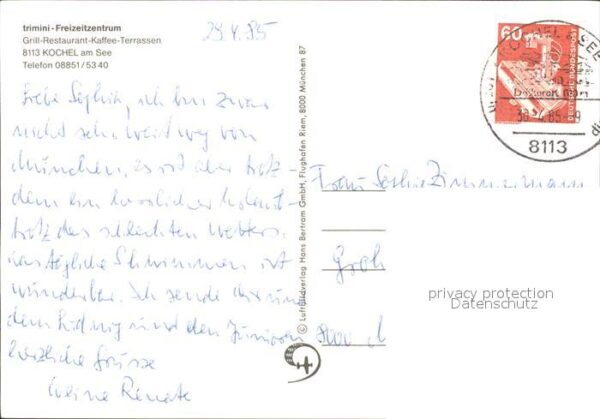 trimini - Freizeitzentrum
Grill-Restaurant-Kaffee-Terrassen
8113 KOCHEL am See
Telefon 08851/53 40
29.4.85
Liebe Sophie, ich bin zwar
nicht sehr weit weg von
München, es ist aber trotz-
dem ein herrlicher
trotz des schlechten Wetters.
das tägliche Schwimmen ist
wunderbar. Ich sende dir und
dem und den
herzliche Grüsse
Deine Renate
© Luftbildverlag Hans Bertram GmbH, Flughafen Riem, 8000 München 87
60
DEUTSCHE BUNDESPOST
KOCHEL A SEE
30.-4.85.-9
8113
Frau Sophie Zimmermann
Groh
8000 M
privacy protection
Datenschutz